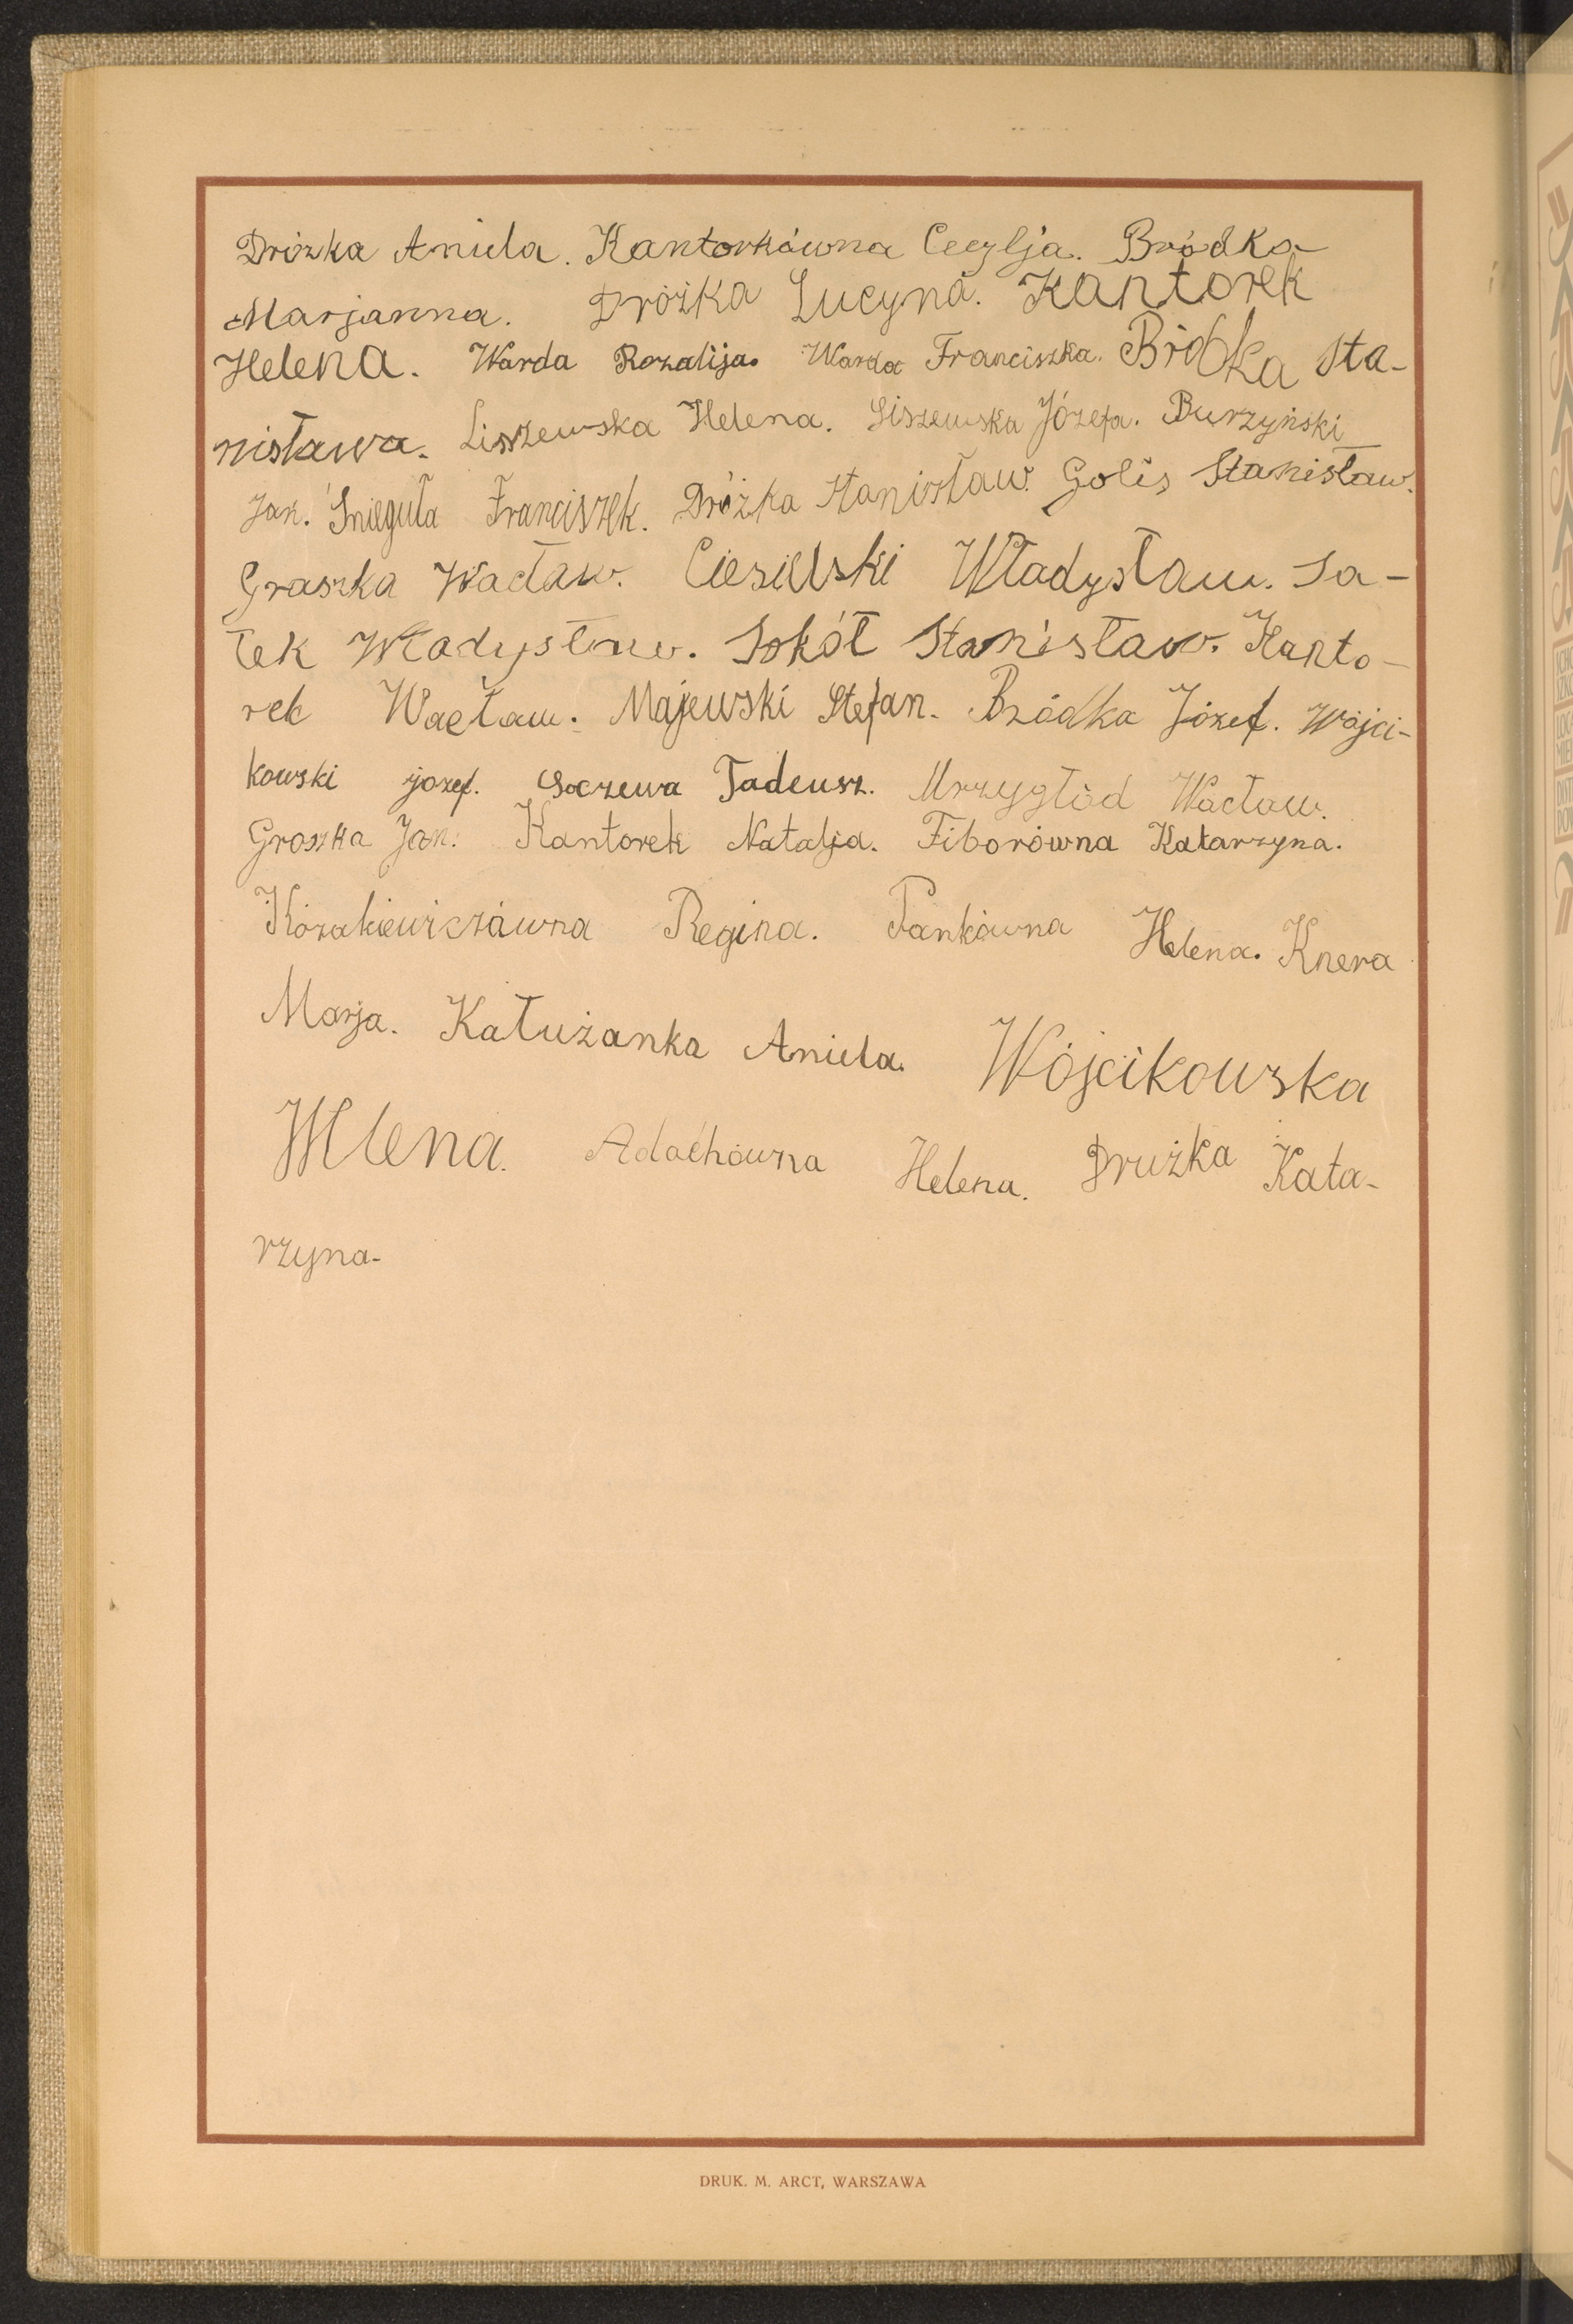 Dróżka Aniela. Kantorkówna Cecylja. Bródka
Marjanna. Dróżka Lucyna. Kantorek
Helena. Warda Rozalija. Warda Franciszka. Bródka Sta-
nisława. Liszewska Helena. Liszewska Józefa. Burzyński
Jan. Śnieguła Franciszek. Dróżka Stanisław. Golis Stanisław.
Graszka Wacław. Ciesielski Władysław. Sa-
łek Władysław. Sokół Stanisław. Kanto-
rek Wacław. Majewski Stefan. Bródka Józef. Wójci-
kowski Józef. Soczewa Tadeusz. Mrzygłód Wacław.
Graszka Jan. Kantorek Natalja. Fiborówna Katarzyna.
Kozakiewiczówna Regina. Pankówna Helena. Knera
Marja. Kałużanka Aniela. Wójcikowska
Helena. Adachówna Helena. Drużka Kata-
rzyna.
DRUK. M. ARCT, WARSZAWA